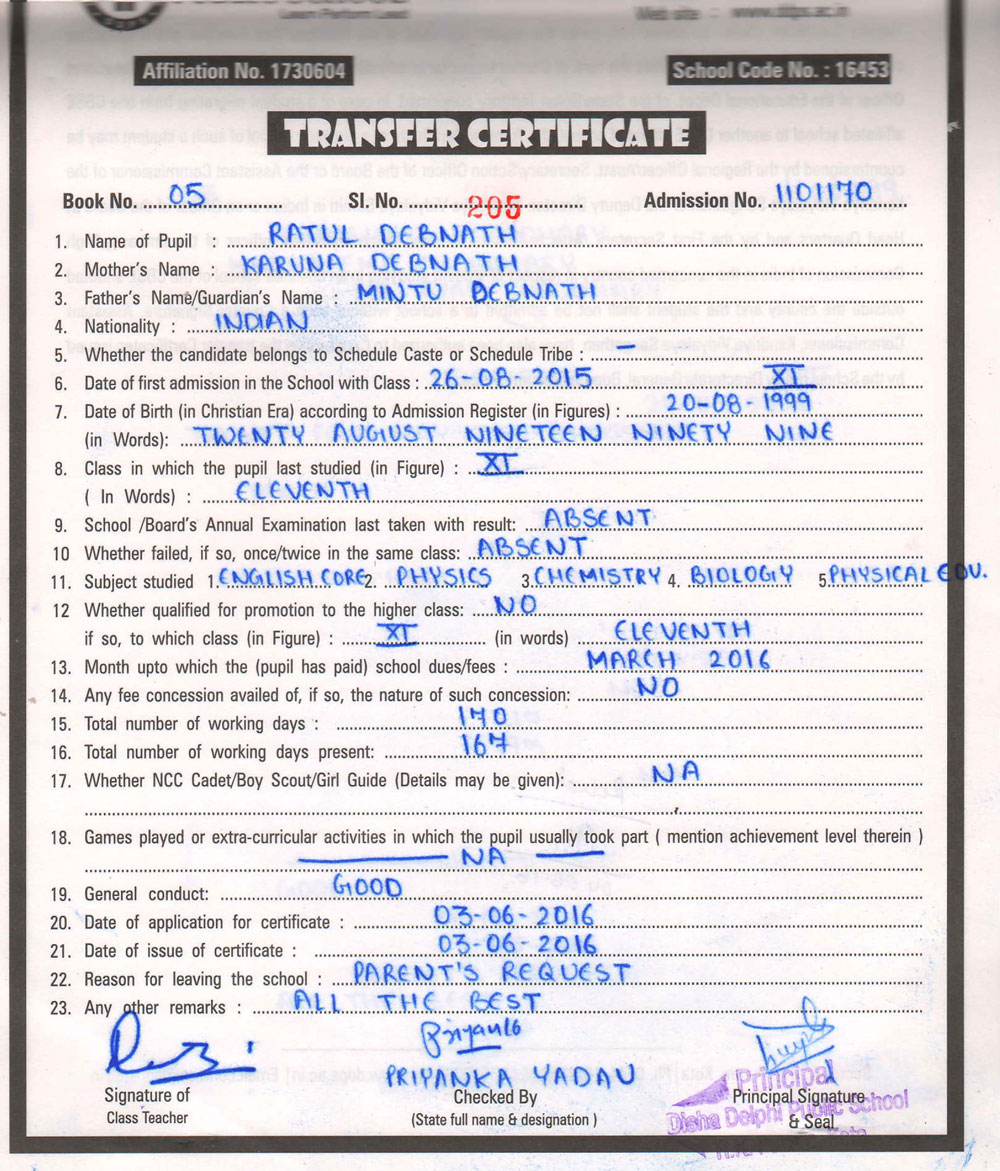 Learn Perform Lead
Web site : www.ddps.ac.in
Affiliation No. 1730604 School Code No. : 16453
TRANSFER CERTIFICATE
Book No. 05 SI. No. 205 Admission No. 1101170
1. Name of Pupil : RATUL DEBNATH
2. Mother's Name : KARUNA DEBNATH
3. Father's Name/Guardian's Name : MINTU DEBNATH
4. Nationality : INDIAN
5. Whether the candidate belongs to Schedule Caste or Schedule Tribe : —
6. Date of first admission in the School with Class : 26-08-2015 XI
7. Date of Birth (in Christian Era) according to Admission Register (in Figures) : 20-08-1999
(in Words): TWENTY AUGUST NINETEEN NINETY NINE
8. Class in which the pupil last studied (in Figure) : XI
( In Words) : ELEVENTH
9. School /Board's Annual Examination last taken with result: ABSENT
10 Whether failed, if so, once/twice in the same class: ABSENT
11. Subject studied 1. ENGLISH CORE 2. PHYSICS 3. CHEMISTRY 4. BIOLOGY 5. PHYSICAL EDU.
12 Whether qualified for promotion to the higher class: NO
if so, to which class (in Figure) : XI (in words) ELEVENTH
13. Month upto which the (pupil has paid) school dues/fees : MARCH 2016
14. Any fee concession availed of, if so, the nature of such concession: NO
15. Total number of working days : 170
16. Total number of working days present: 167
17. Whether NCC Cadet/Boy Scout/Girl Guide (Details may be given): NA
18. Games played or extra-curricular activities in which the pupil usually took part ( mention achievement level therein )
— NA —
19. General conduct: GOOD
20. Date of application for certificate : 03-06-2016
21. Date of issue of certificate : 03-06-2016
22. Reason for leaving the school : PARENT'S REQUEST
23. Any other remarks : ALL THE BEST
PRIYANKA YADAV
Principal
Signature of Checked By Principal Signature
Disha Delphi Public School
Class Teacher (State full name & designation ) & Seal